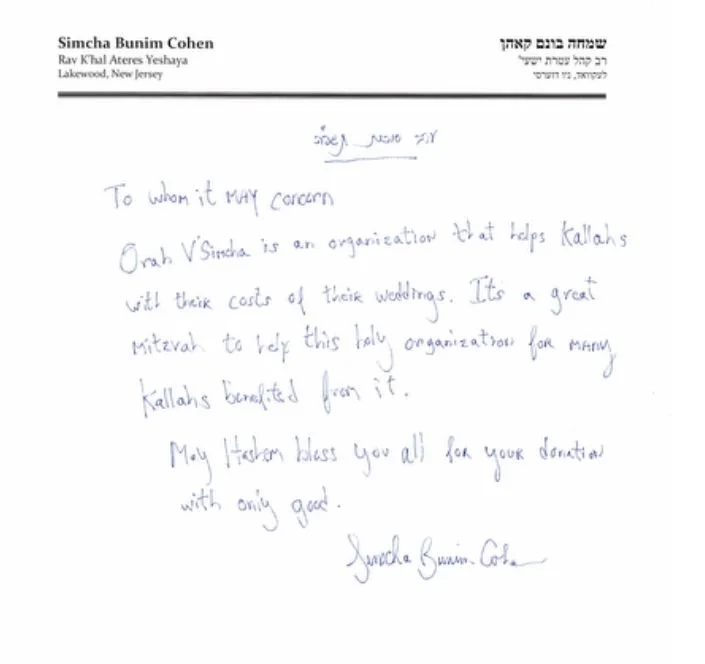 Simcha Bunim Cohen
Rav K'hal Ateres Yeshaya
Lakewood, New Jersey
שמחה בונם קאהן
רב קהל עטרת ישעי'
לעקוואד, ניו דזערסי
To whom it MAY Concern
Orah V'Simcha is an organization that helps Kallahs
with their costs of their weddings. It's a great
Mitzvah to help this holy organization for many
Kallahs benefited from it.
May Hashem bless you all for your donation
with only good.
Simcha Bunim Cohen